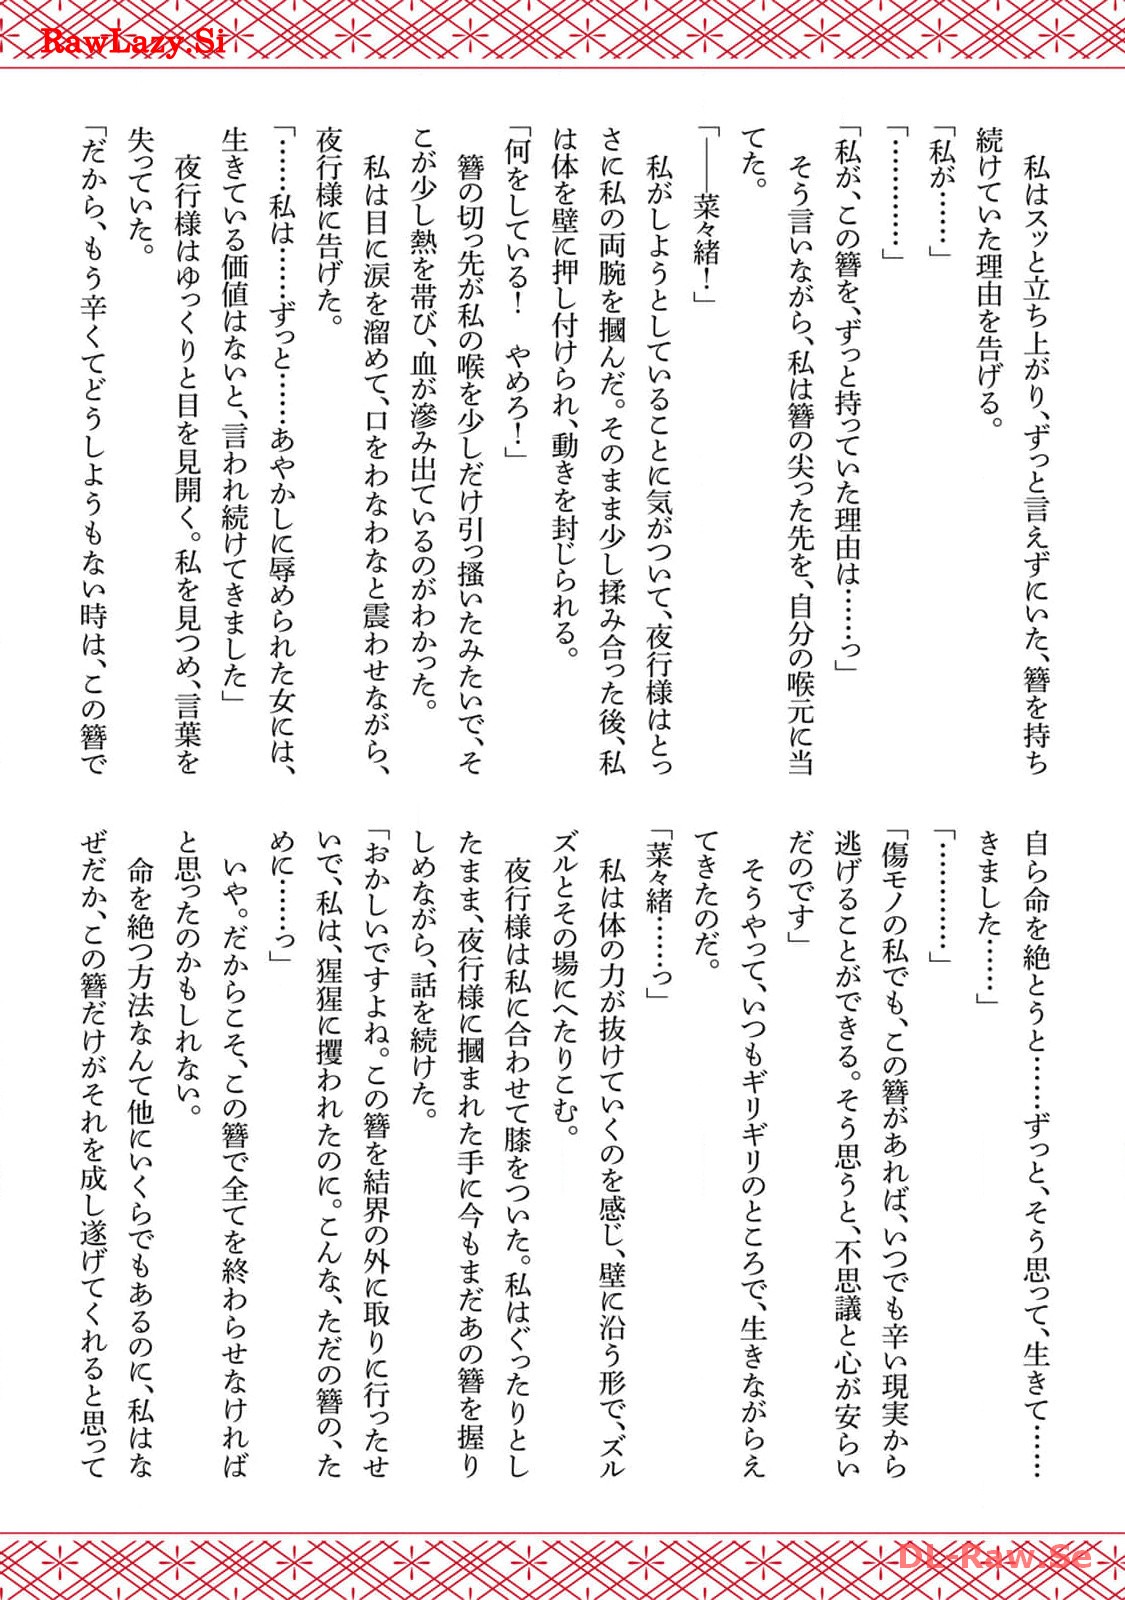 RawLazy.Si
私はスッと立ち上がり、ずっと言えずにいた、簪を持ち
続けていた理由を告げる。
「私が……」
「…………」
「私が、この簪を、ずっと持っていた理由は……っ」
そう言いながら、私は簪の尖った先を、自分の喉元に当
てた。
「――菜々緒！」
私がしようとしていることに気がついて、夜行様はとっ
さに私の両腕を摑んだ。そのまま少し揉み合った後、私
は体を壁に押し付けられ、動きを封じられる。
「何をしている！　やめろ！」
簪の切っ先が私の喉を少しだけ引っ搔いたみたいで、そ
こが少し熱を帯び、血が滲み出ているのがわかった。
私は目に涙を溜めて、口をわなわなと震わせながら、
夜行様に告げた。
「……私は……ずっと……あやかしに辱められた女には、
生きている価値はないと、言われ続けてきました」
夜行様はゆっくりと目を見開く。私を見つめ、言葉を
失っていた。
「だから、もう辛くてどうしようもない時は、この簪で
自ら命を絶とうと……ずっと、そう思って、生きて……
きました……」
「…………」
「傷モノの私でも、この簪があれば、いつでも辛い現実から
逃げることができる。そう思うと、不思議と心が安らい
だのです」
そうやって、いつもギリギリのところで、生きながらえ
てきたのだ。
「菜々緒……っ」
私は体の力が抜けていくのを感じ、壁に沿う形で、ズル
ズルとその場にへたりこむ。
夜行様は私に合わせて膝をついた。私はぐったりとし
たまま、夜行様に摑まれた手に今もまだあの簪を握り
しめながら、話を続けた。
「おかしいですよね。この簪を結界の外に取りに行ったせ
いで、私は、猩猩に攫われたのに。こんな、ただの簪の、た
めに……っ」
いや。だからこそ、この簪で全てを終わらせなければ
と思ったのかもしれない。
命を絶つ方法なんて他にいくらでもあるのに、私はな
ぜだか、この簪だけがそれを成し遂げてくれると思って
DL-Raw.Se